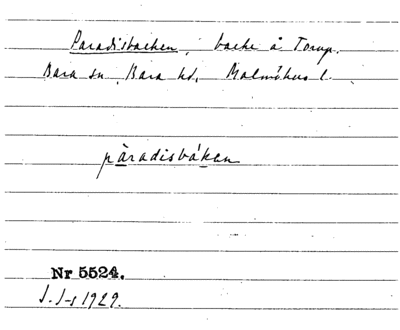 Paradisbacken, backe å Torup.
Bara sn, Bara hd, Malmöhus l.
pàradisbákan
Nr 5524.
J. J-s 1929.